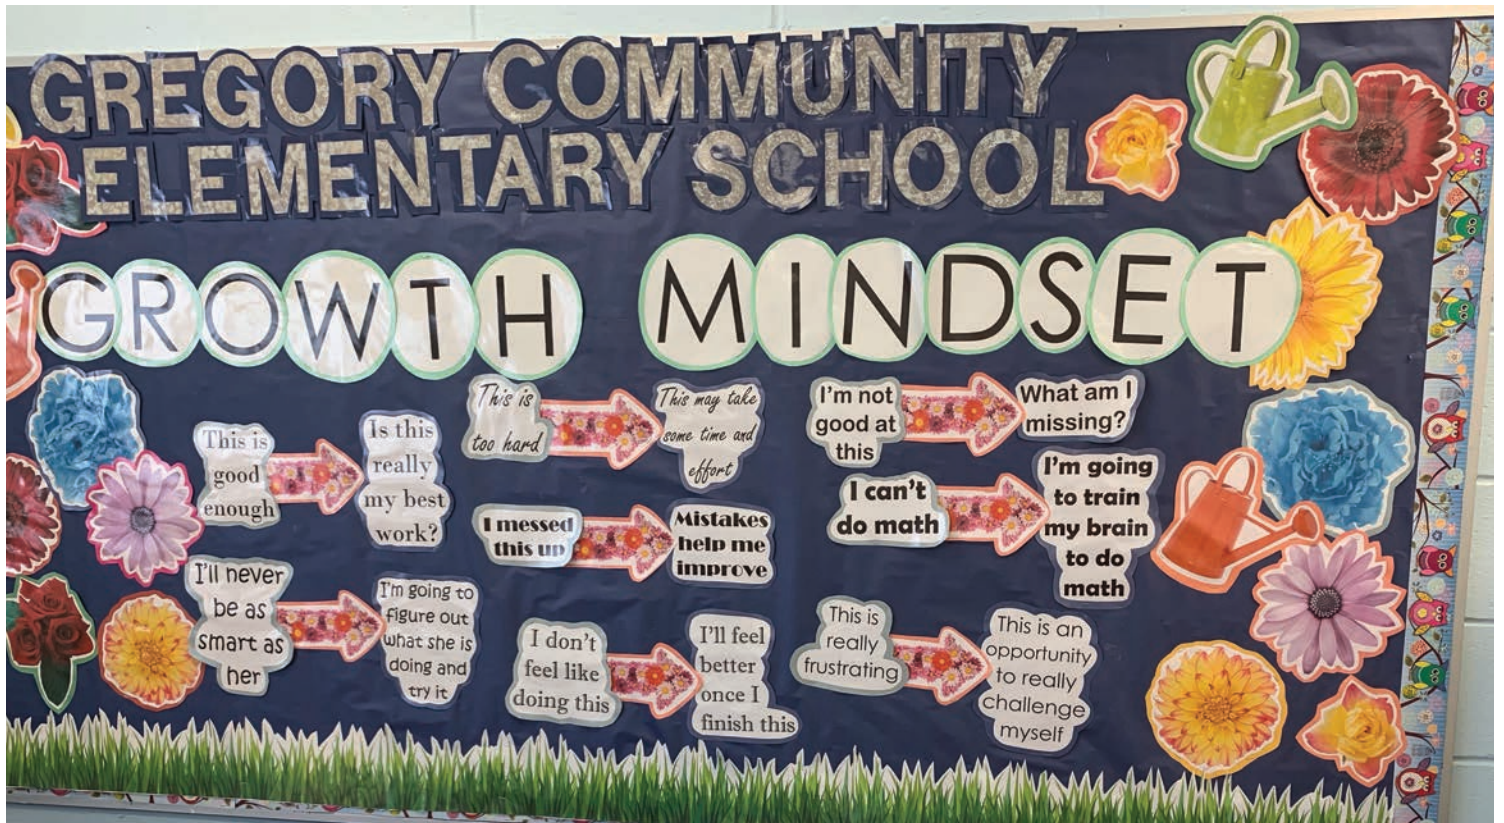 GREGORY COMMUNITY
ELEMENTARY SCHOOL
GROWTH MINDSET
This is
good
enough
Is this
really
my best
work?
This is
too hard
This may take
some time and
effort
I'm not
good at
this
What am I
missing?
I messed
this up
Mistakes
help me
improve
I can't
do math
I'm going
to train
my brain
to do
math
I'll never
be as
smart as
her
I'm going to
figure out
what she is
doing and
try it
I don't
feel like
doing this
I'll feel
better
once I
finish this
This is
really
frustrating
This is an
opportunity
to really
challenge
myself